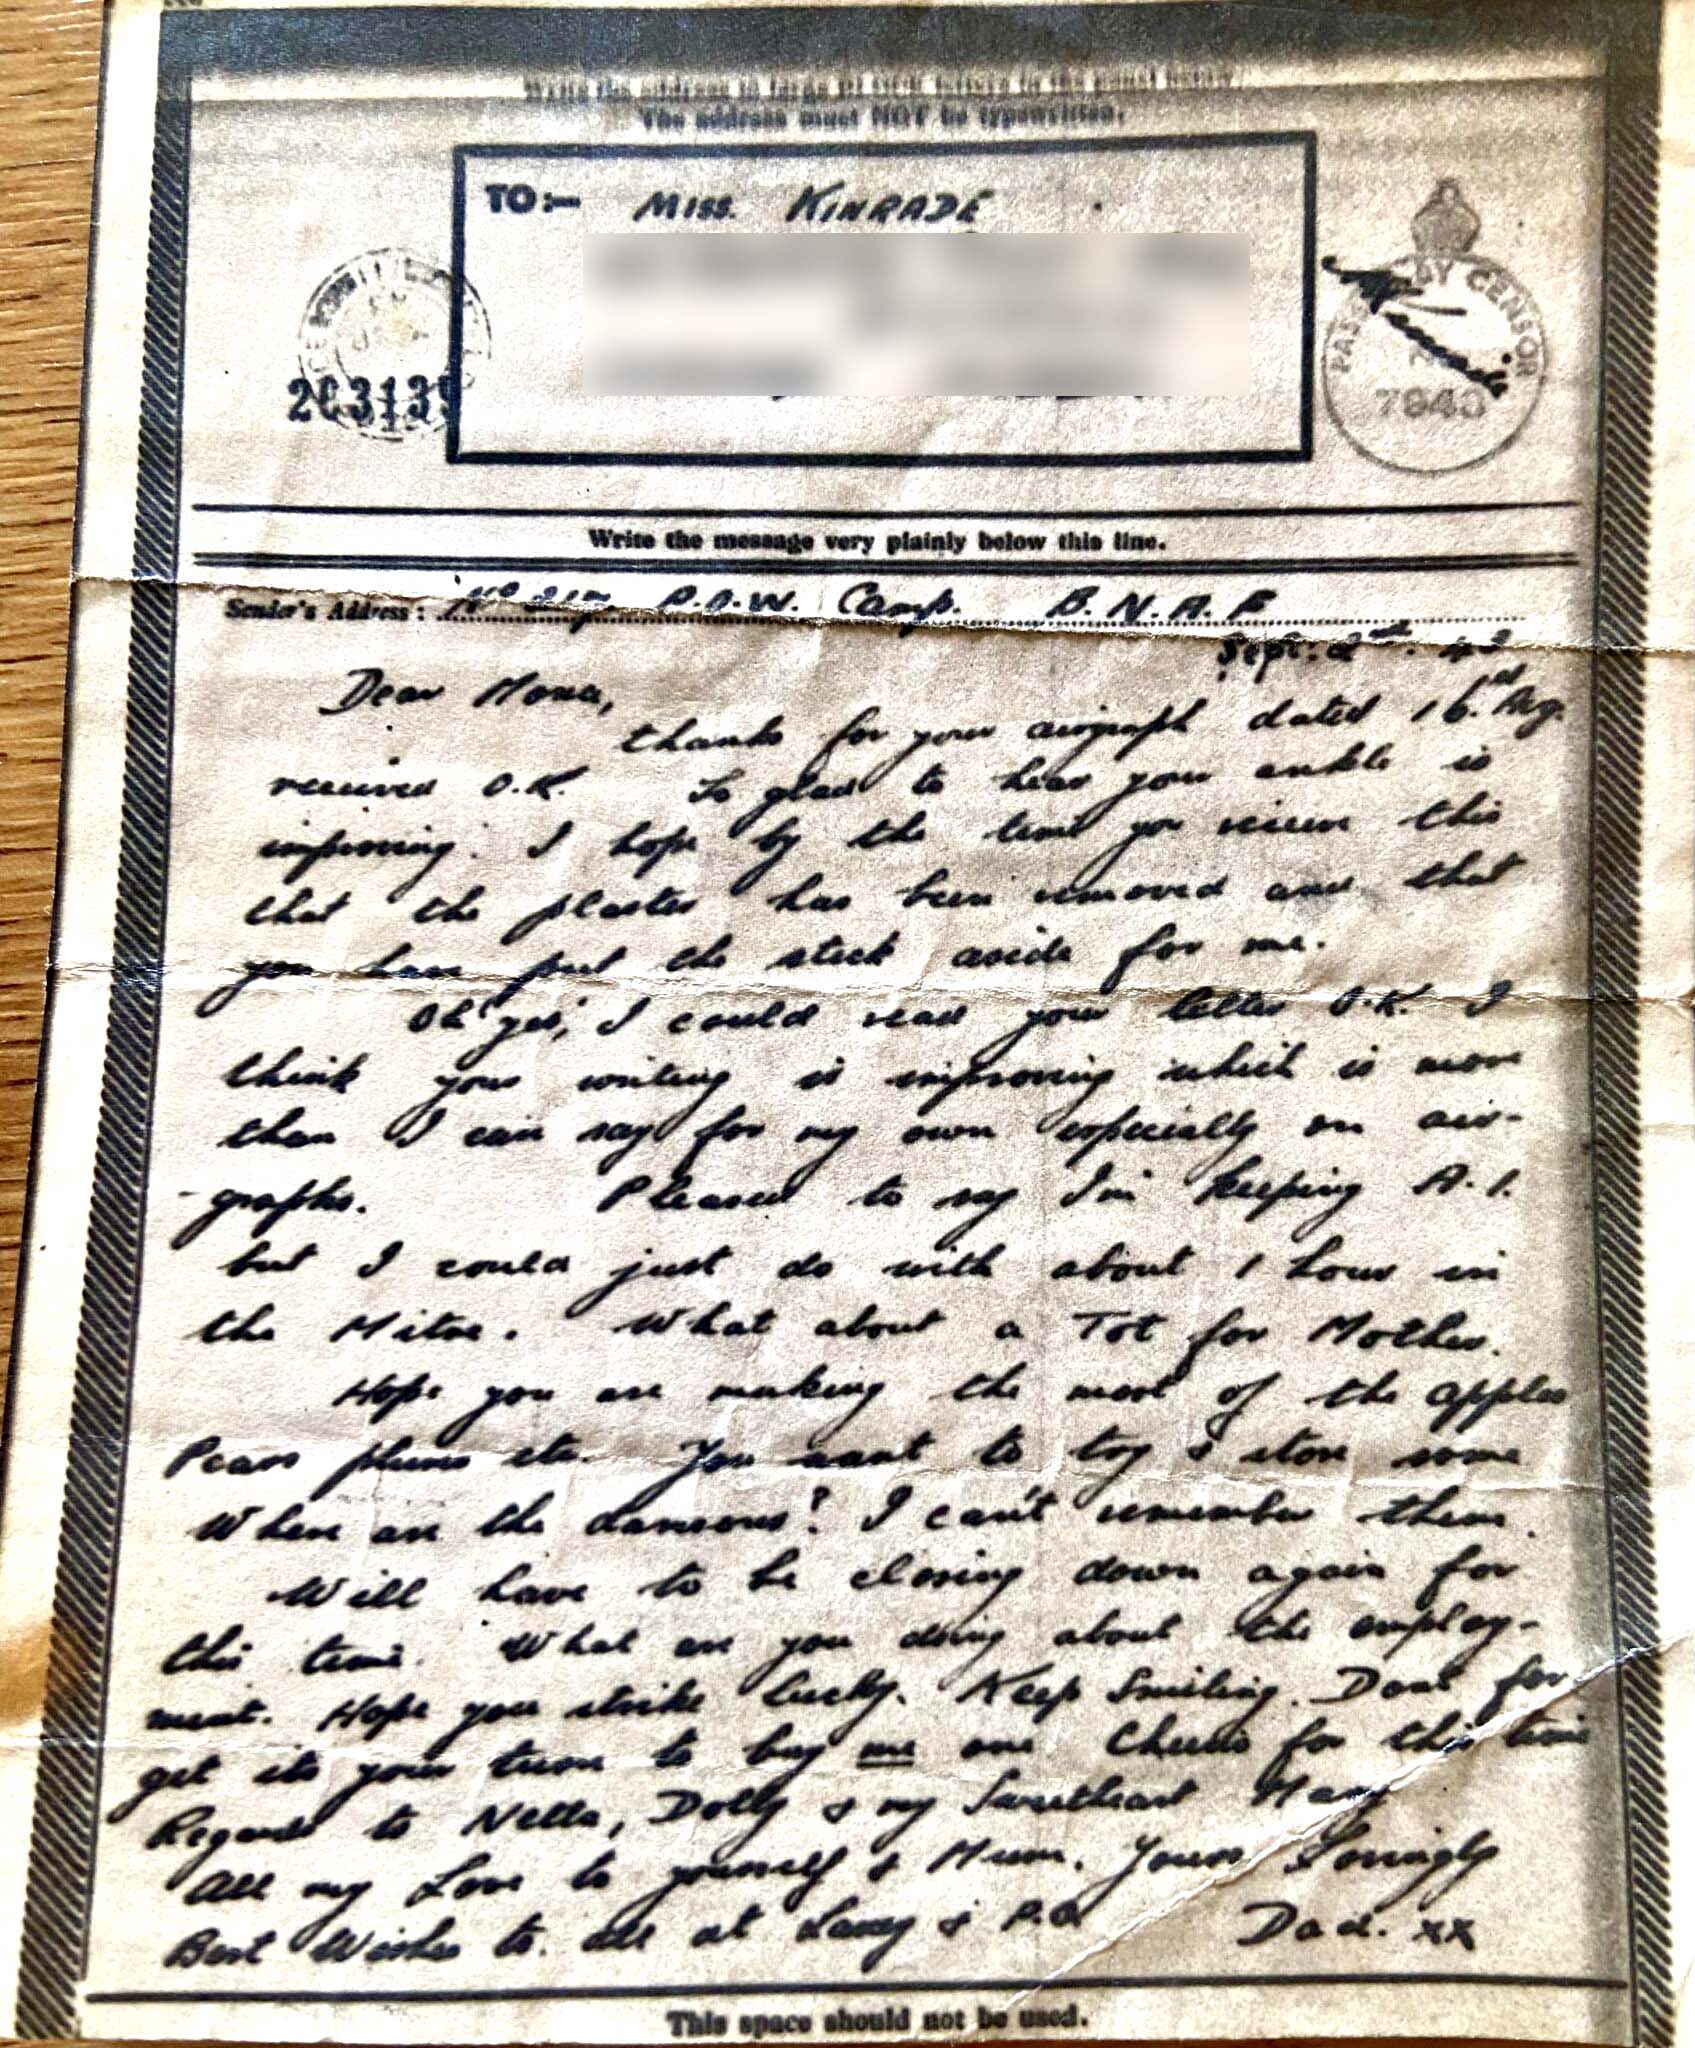 Write the address in large BLOCK letters in the panel below.
The address must NOT be typewritten.
TO:- MISS. KINRADE
PASSED BY CENSOR
7843
Kinrade
Write the message very plainly below this line.
Sender's Address: No 217. P.O.W. Camp. B.N.A.F
Sept: 2nd. 43
Dear Mona,
thanks for your airgraph dated 16th Aug.
received O.K. So glad to hear your ankle is
improving. I hope by the time you receive this
that the plaster has been removed and that
you have put the stick aside for me.
Oh 'yes', I could read your letter O.K. I
think your writing is improving which is more
than I can say for my own especially on air-
-graphs. Pleased to say I'm keeping A.1.
but I could just do with about 1 hour in
the Mitre. What about a Tot for Mother.
Hope you are making the most of the apples
Pears plums etc. You want to try & store some
Where are the damsons? I can't remember them.
Will have to be closing down again for
this time. What are you doing about the employ-
ment. Hope you strike lucky. Keep Smiling. Dont for
get its your turn to buy me one Cheerio for this time
Regards to Netta, Dolly & my Sweetheart Mary
All my Love to yourself & Mum. Yours Lovingly
Best Wishes to all at Laxey & P.O. Dad. xx
This space should not be used.